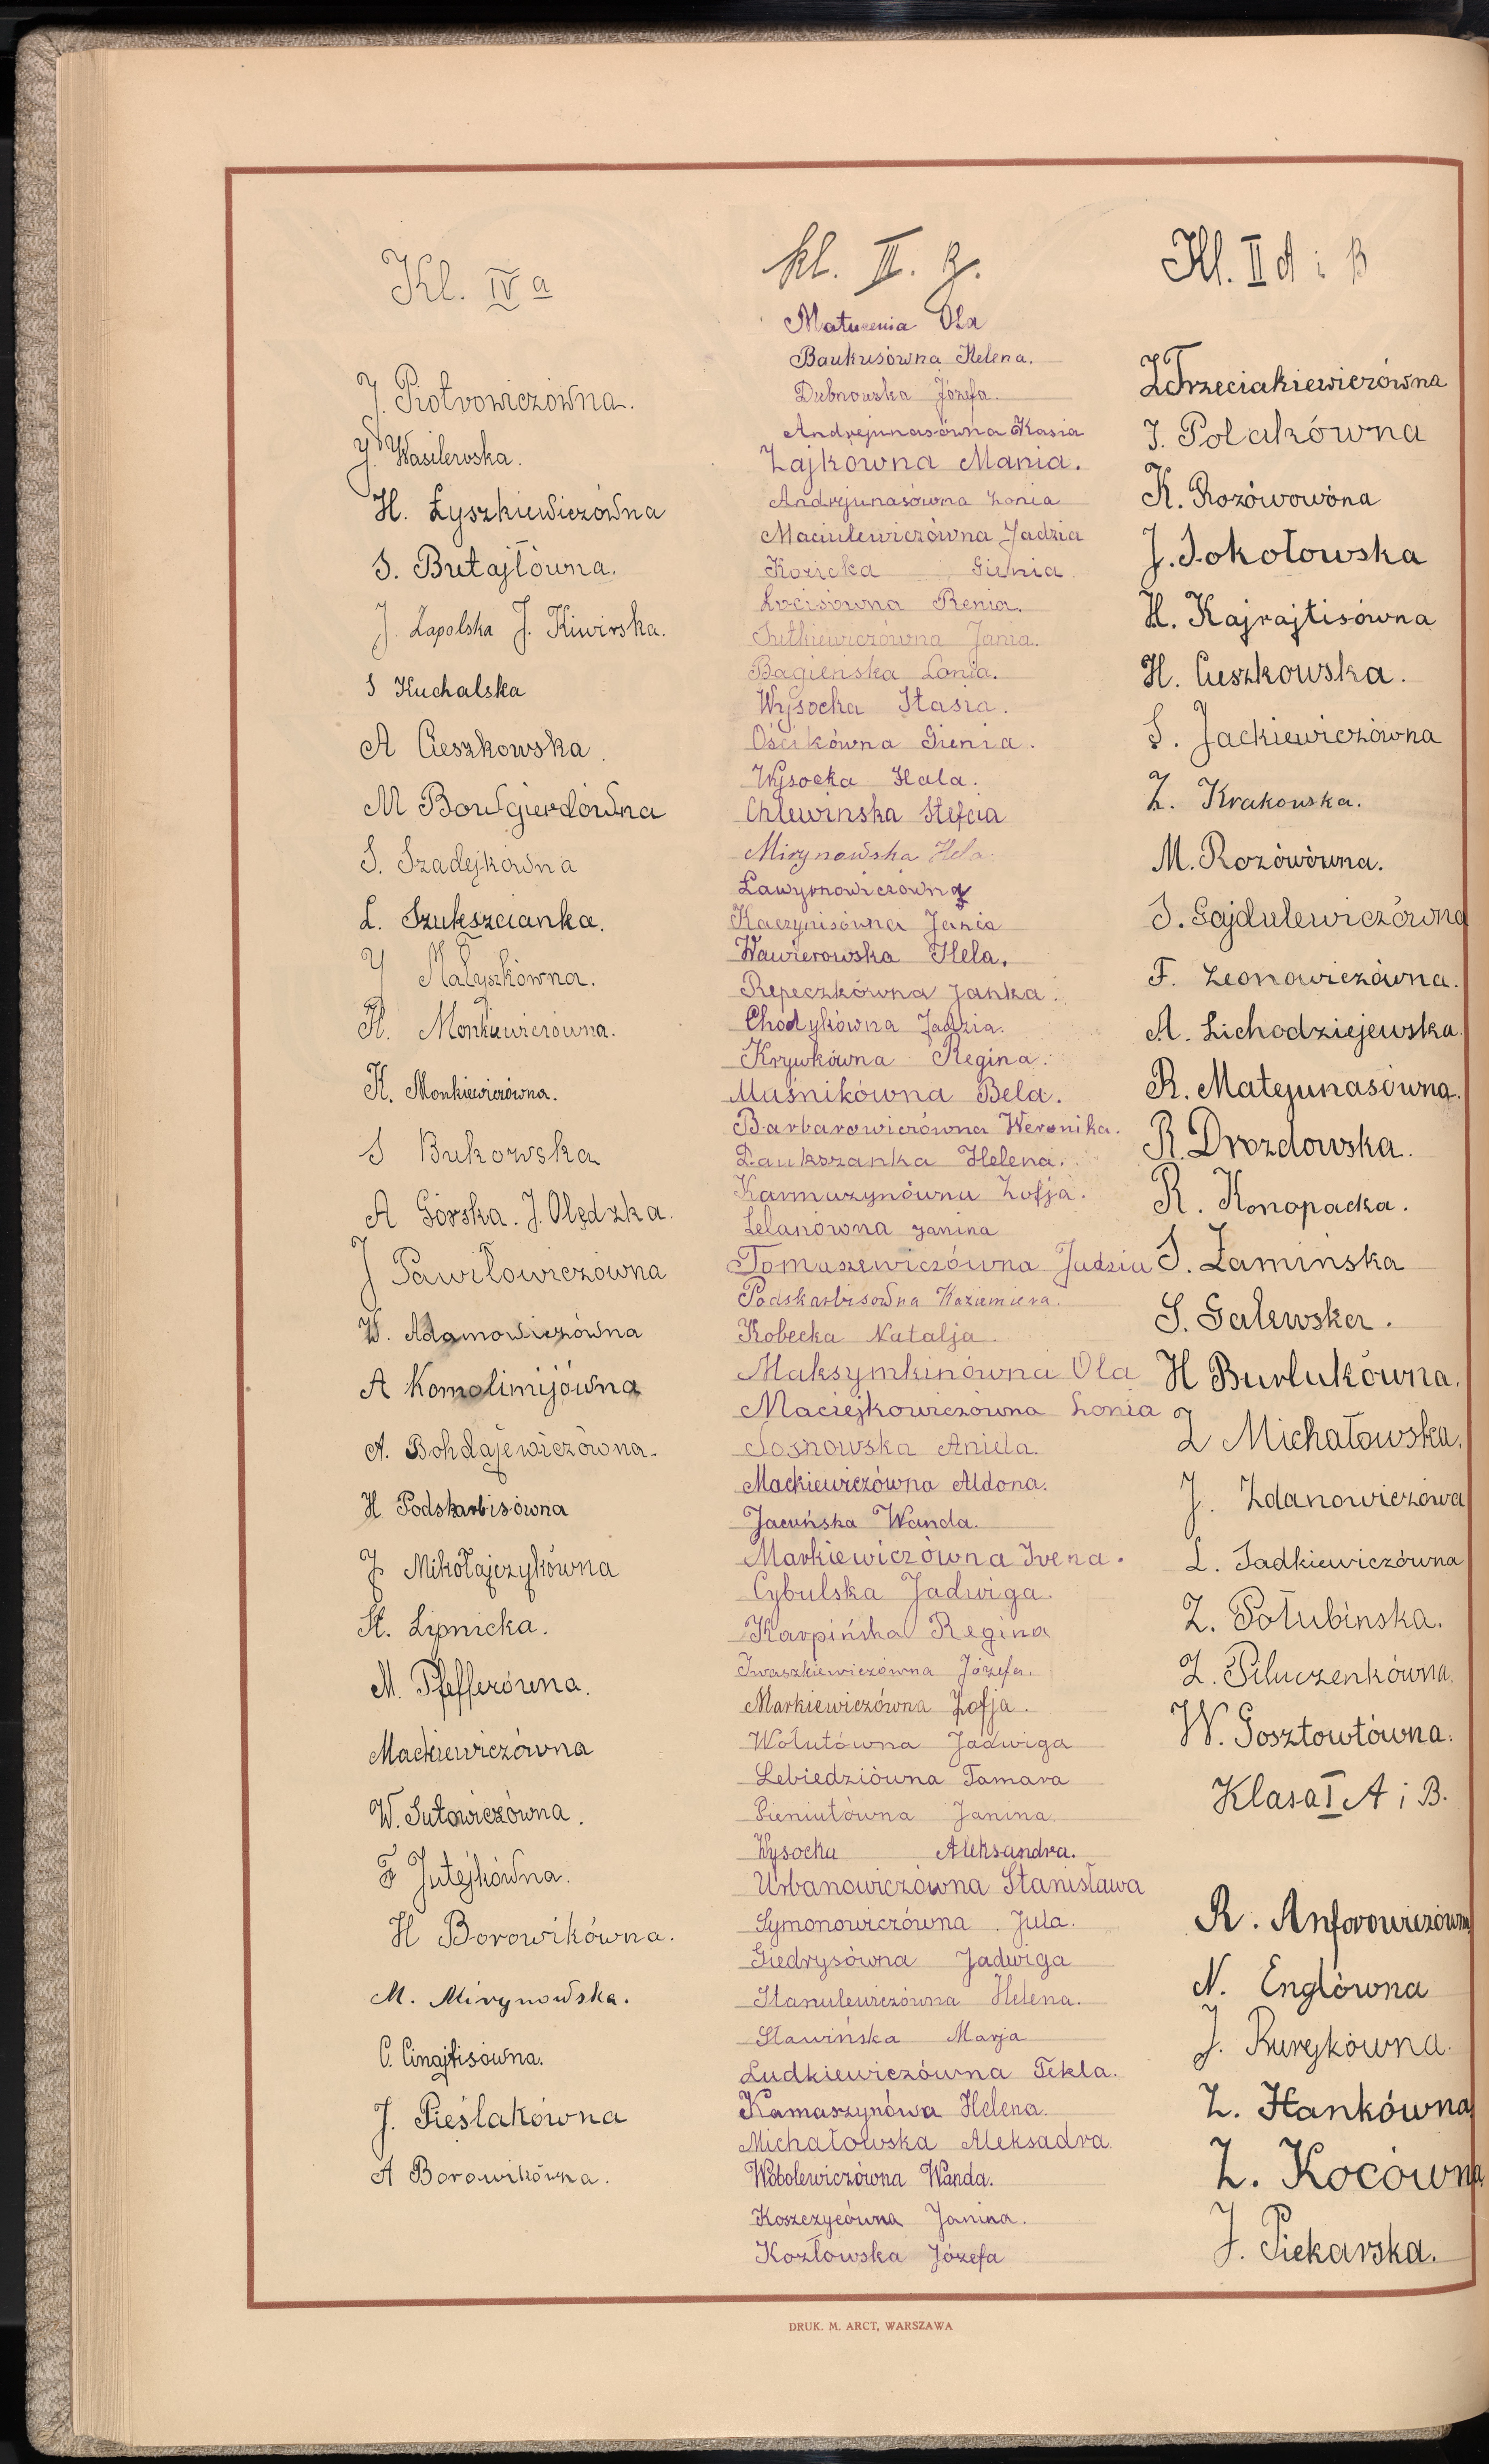 Kl. IV a
J. Piotrowiczówna.
J. Wasilewska.
H. Łyszkiewiczówna
S. Butajłówna.
J. Zapolska J. Kiwirska.
S Kuchalska
A Cieszkowska.
M Bowgierdówna
S. Szadejkówna
L. Szukszcianka.
J Małyszkówna.
H. Monkiewiczówna.
K. Monkiewiczówna.
S Bukowska
A Górska. J. Olędzka.
J Pawiłowiczówna
W. Adamowiczówna
A Komolimijówna
A. Bohdajewiczówna.
H Podskarbisówna
J Mikołajczykówna
St. Lipnicka.
M. Pfefferówna.
Mackiewiczówna
W. Sutowiczówna.
F Jutejkówna.
H Borowikówna.
M. Mirynowska.
C. Cinajtisówna.
J. Pieślakówna
A Borowikówna.
kl. III. B.
Maturenia Ola
Baukusówna Helena.
Dubnowska Józefa.
Andrejunasówna Kasia
Zajkówna Mania.
Andrejunasówna Lonia
Maciulewiczówna Jadzia
Kozicka Gienia
Łocisówna Renia.
Jutkiewiczówna Jania.
Bagieńska Lonia.
Wysocka Stasia.
Ościkówna Gienia.
Wysocka Hala.
Chlewinska Stefcia
Mirynowska Hela.
Ławrynowiczówna
Kaczynisówna Jania
Wawierowska Hela.
Repeczkówna Janka.
Chodykówna Jadzia.
Krywkówna Regina.
Muśnikówna Bela.
Barbarowiczówna Weronika.
Daukszanka Helena.
Karmuzynówna Zofja.
Lelanówna Janina
Tomaszewiczówna Jadzia
Podskarbisówna Kaziemiera.
Kobecka Natalja.
Maksymkinówna Ola
Maciejkowiczówna Lonia
Sosnowska Aniela.
Mackiewiczówna Aldona.
Jacuńska Wanda.
Markiewiczówna Irena.
Cybulska Jadwiga.
Karpińska Regina
Iwaszkiewiczówna Józefa.
Markiewiczówna Zofja.
Wołutówna Jadwiga
Lebiedziówna Tamara
Pieniutówna Janina.
Wysocka Aleksandra.
Urbanowiczówna Stanisława
Symonowiczówna Jula.
Giedrysówna Jadwiga
Stanulewiczówna Helena.
Sławińska Marja
Ludkiewiczówna Tekla.
Kamaszynówa Helena.
Michałowska Aleksadra.
Wobolewiczówna Wanda.
Koszczycówna Janina.
Kozłowska Józefa
Kl. II A i B
Z Trzeciakiewiczówna
J. Polakówna
K. Rozówowóna
J. Sokołowska
H. Kajrajtisówna
H. Cieszkowska.
S. Jackiewiczówna
Z. Krakowska.
M. Rozówówna.
S. Gajdulewiczówna
F. Leonowiczówna.
A. Lichodziejewska.
R. Matejunasówna.
R. Drozdowska.
R. Konopacka.
S. Łamińska
S. Galewska.
H Burlukówna.
Z Michałowska.
J. Zdanowiczówa
L. Sadkiewiczówna
Z. Połubinska.
Z. Piluczenkówna.
W. Gosztowtówna.
Klasa I A i B.
R. Anforowiczówna
N. Englówna
J. Rurykówna.
Z. Hankówna
Z. Kocówna
J. Piekarska.
DRUK. M. ARCT, WARSZAWA